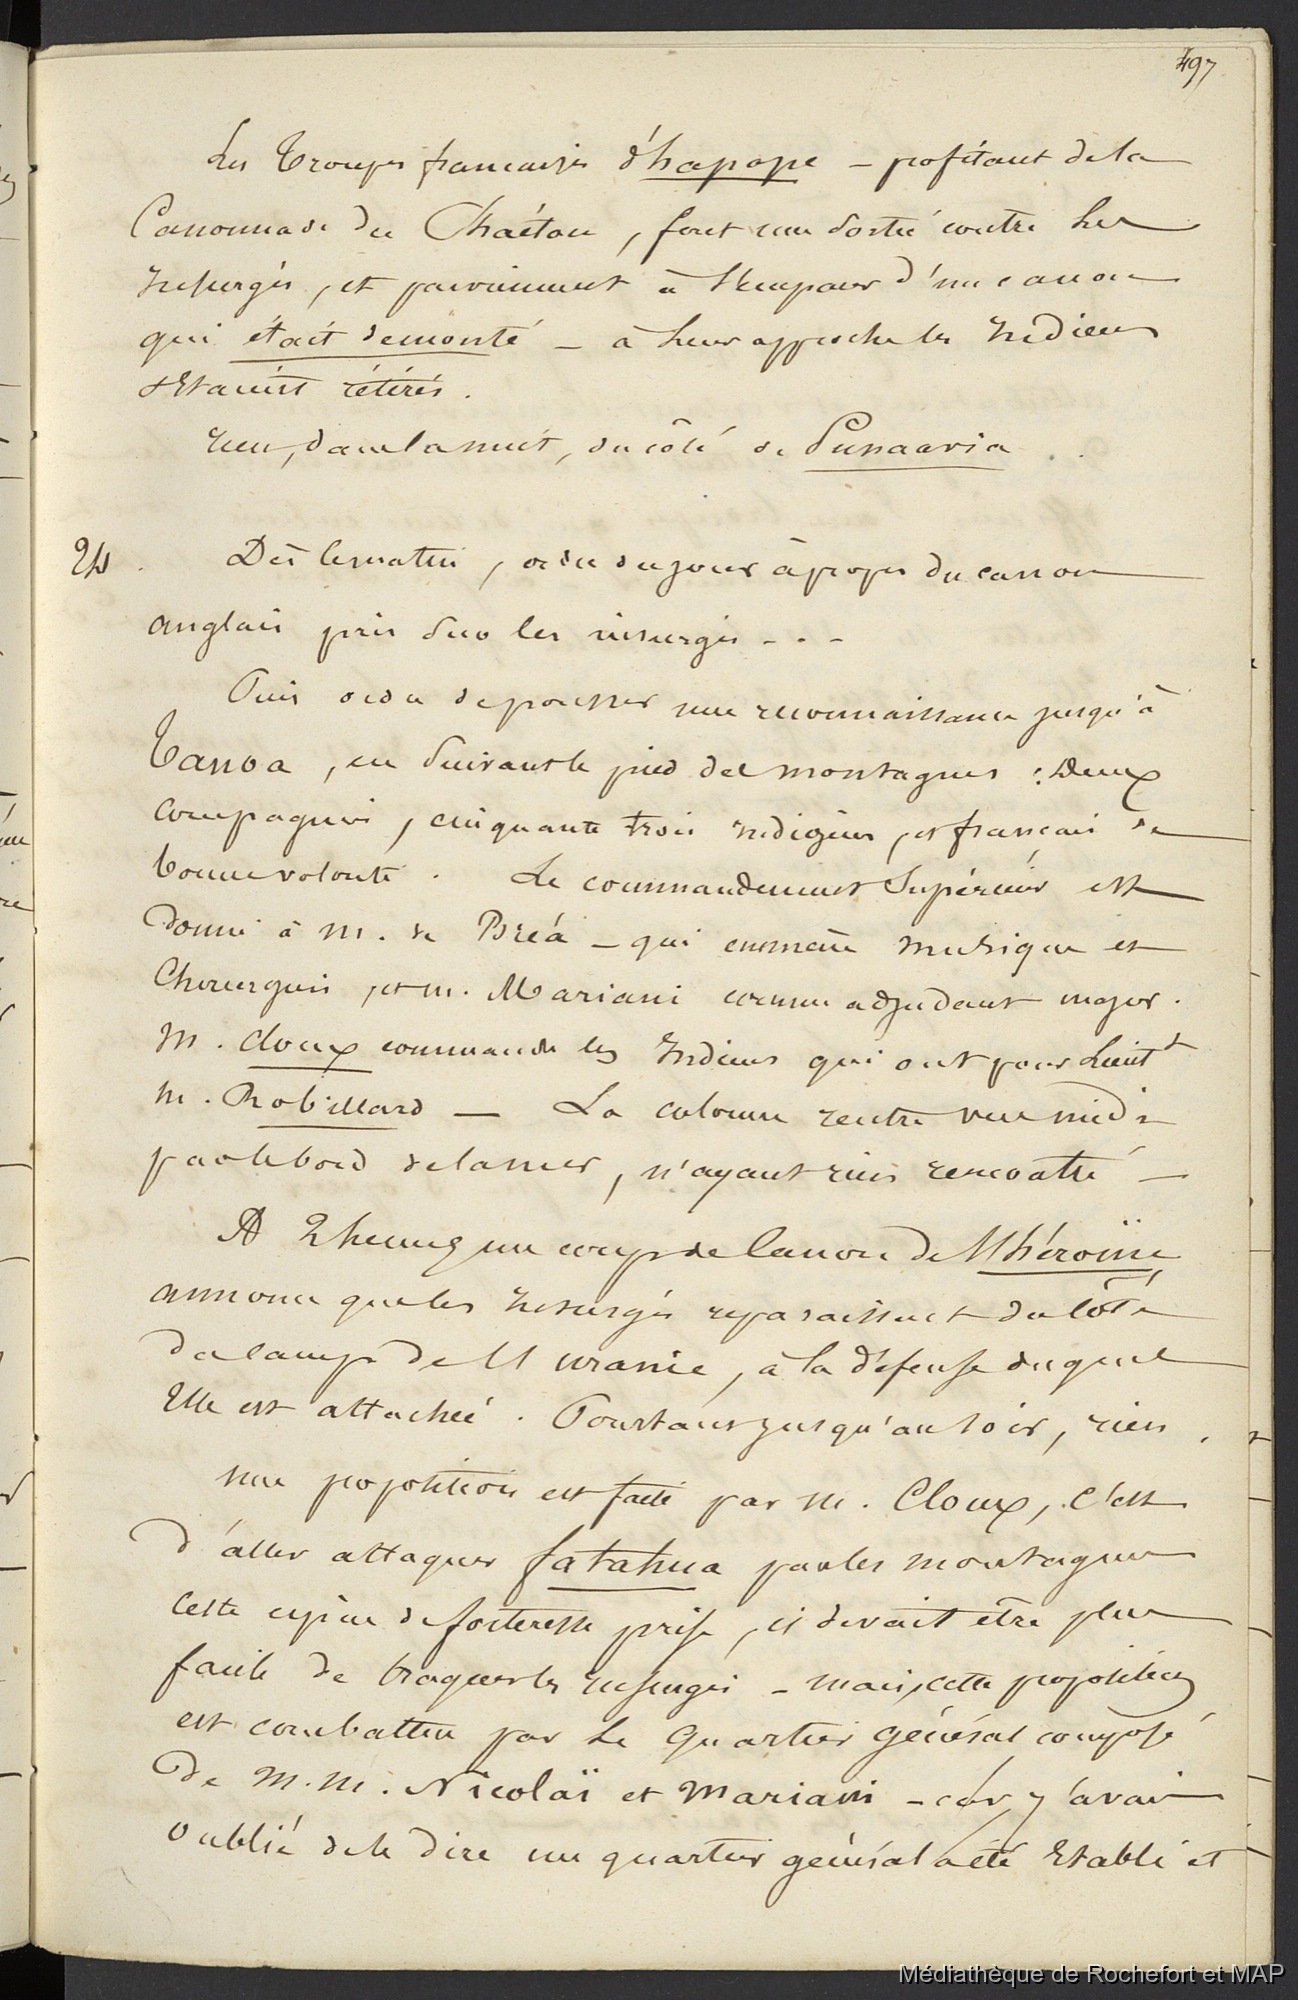 497
Les Troupes françaises d'hapape – profitant de la
Canonnade du Phaéton, font une sortie contre les
Insurgés, et parviennent à s'emparer d'un canon
qui était demonté – à leur approche les Indiens
s'Etaient rétirés.
rien, dans la nuit, du côté de Punaavia.
24. Dès le matin, ordre du jour à propos du canon
anglais pris sur les insurgés - . -
Puis ordre de pousser une reconnaissance jusqu'à
Tanoa, en suivant le pied des montagnes : Deux
compagnies, cinquante trois indigènes, et français de
bonne volonté. Le commandement Supérieur est
donné à M. de Bréa – qui emmène musique et
Chirurgien, et M. Mariani comme adjudant major.
M. Cloux commande les Indiens qui ont pour Lieut.t
M. Robillard — La colonne rentre vers midi
par le bord de la mer, n'ayant rien rencontré —
A 2 heures un coup de canon de l'héroïne
annonce que les Insurgés reparaissent du côté
du camp de l'uranie, à la défense duquel
Elle est attachée. Pourtant jusqu'au soir, rien.
Une proposition est faite par M. Cloux, c'est
d'aller attaquer fatahua par les montagnes
cette espèce de forteresse prise, il devait être plus
facile de traquer les insurgés – mais, cette proposition
est combattue par le Quartier général composé
de M.M. Nicolaï et Mariani – car j'avais
oublié de le dire un quartier général a été Etabli et
Médiathèque de Rochefort et MAP